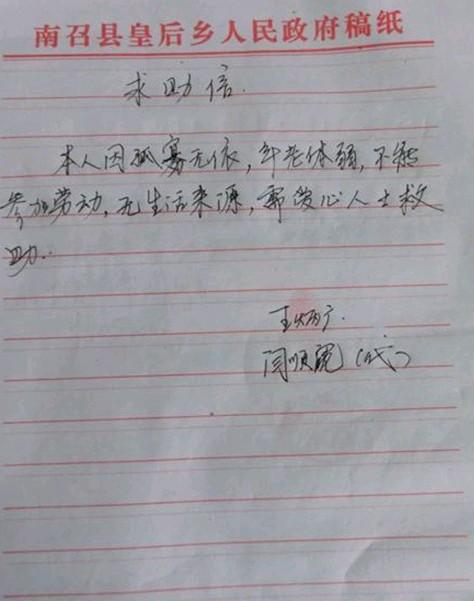 南召县皇后乡人民政府稿纸
求助信.
本人因孤寡无依，年老体弱，不能
参加劳动，无生活来源，需爱心人士救
助.
王炳广.
闫顺宽（代）